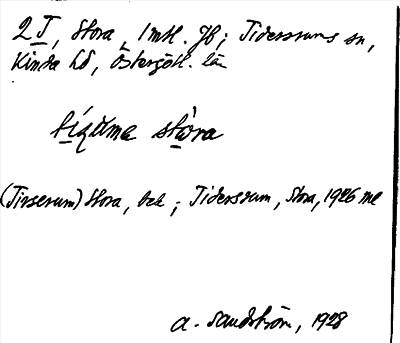 2 I, Stora, 1 mtl. Gb; Tidersrums sn,
Kinda hd, Östergötl. län
stóra
(Tirserum) Stora, bek; Tidersrum, Stora, 1926 ml
A. Sandström, 1928